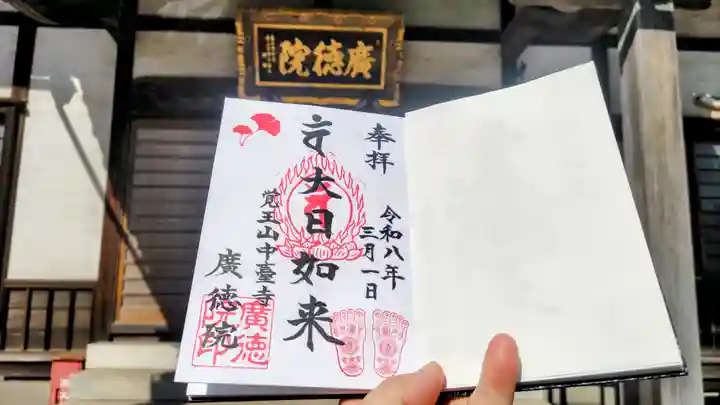 廣徳院
奉拝
令和八年
三月一日
大日如来
覚王山中臺寺
廣徳院
廣徳
院印